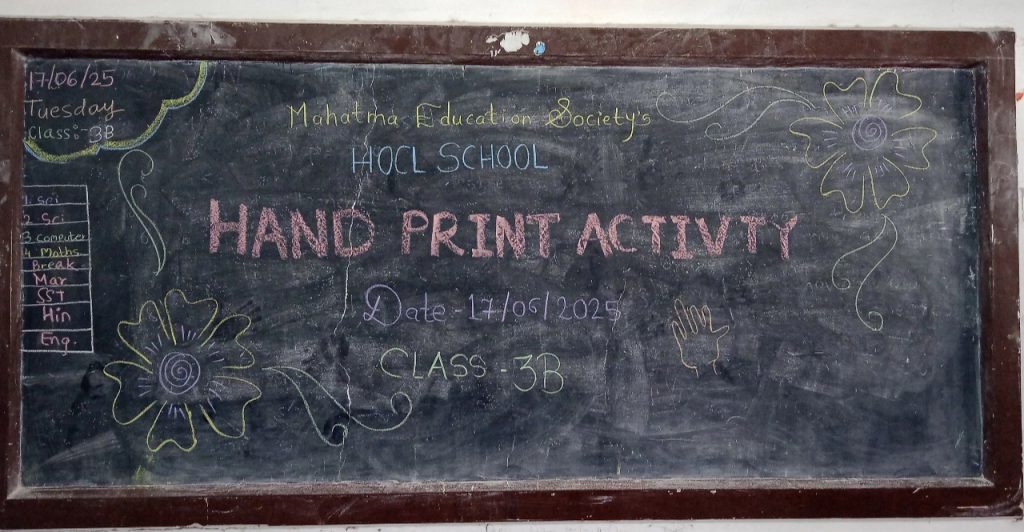 17/06/25
Tuesday
Class:- 3B
1. Sci
2. Sci
3 Computer
4 Maths
Break
Mar
SST
Hin
Eng.
Mahatma Education Society's
HOCL SCHOOL
HAND PRINT ACTIVTY
Date - 17/06/2025
CLASS - 3B